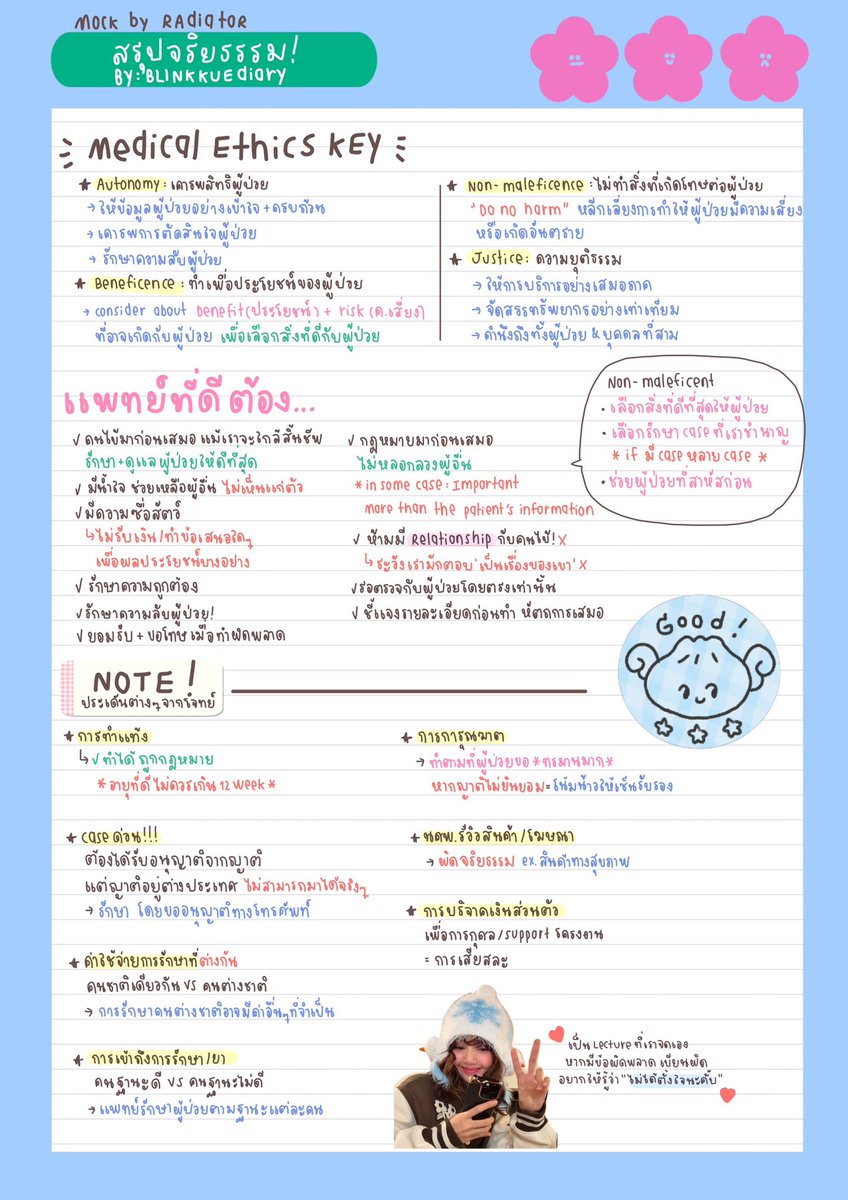 Mock by RAdiator
สรุปจริยธรรม!
BY: BLINKKUEdiary
Medical Ethics KEY
★ Autonomy : เคารพสิทธิผู้ป่วย
→ ให้ข้อมูลผู้ป่วยอย่างเข้าใจ + ครบถ้วน
→ เคารพการตัดสินใจผู้ป่วย
→ รักษาความลับผู้ป่วย
★ Beneficence : ทำเพื่อประโยชน์ของผู้ป่วย
→ consider about benefit(ประโยชน์) + risk (ค.เสี่ยง)
ที่อาจเกิดกับผู้ป่วย เพื่อเลือกสิ่งที่ดีกับผู้ป่วย
★ Non-maleficence : ไม่ทำสิ่งที่เกิดโทษต่อผู้ป่วย
"Do no harm" หลีกเลี่ยงการทำให้ผู้ป่วยมีความเสี่ยง
หรือเกิดอันตราย
★ Justice : ความยุติธรรม
→ ให้การบริการอย่างเสมอภาค
→ จัดสรรทรัพยากรอย่างเท่าเทียม
→ คำนึงถึงทั้งผู้ป่วย & บุคคลที่สาม
แพทย์ที่ดีต้อง...
✓ คนไข้มาก่อนเสมอ แม้เราจะใกล้สิ้นชีพ
รักษา+ดูแลผู้ป่วยให้ดีที่สุด
✓ มีน้ำใจ ช่วยเหลือผู้อื่น ไม่เห็นแก่ตัว
✓ มีความซื่อสัตว์
↳ ไม่รับเงิน/ทำข้อเสนอใดๆ
เพื่อผลประโยชน์บางอย่าง
✓ รักษาความถูกต้อง
✓ รักษาความลับผู้ป่วย!
✓ ยอมรับ + ขอโทษ เมื่อทำผิดพลาด
✓ กฎหมายมาก่อนเสมอ
ไม่หลอกลวงผู้อื่น
* in some case : Important
more than the patient's information
✓ ห้ามมี Relationship กับคนไข้! X
↳ ระวังเรามักตอบ 'เป็นเรื่องของเขา' X
✓ รอตรวจกับผู้ป่วยโดยตรงเท่านั้น
✓ ชี้แจงรายละเอียดก่อนทำ หัตถการเสมอ
Non-maleficent
• เลือกสิ่งที่ดีที่สุดให้ผู้ป่วย
• เลือกรักษา case ที่เราชำนาญ
* if มี case หลาย case *
• ช่วยผู้ป่วยที่สาหัสก่อน
Good!
NOTE !
ประเด็นต่างๆจากโจทย์
★ การทำแท้ง
↳ ✓ ทำได้ ถูกกฎหมาย
* อายุที่ดี ไม่ควรเกิน 12 week *
★ case ด่วน!!!
ต้องได้รับอนุญาติจากญาติ
แต่ญาติอยู่ต่างประเทศ ไม่สามารถมาได้จริงๆ
→ รักษา โดยขออนุญาติทางโทรศัพท์
★ ค่าใช้จ่ายการรักษาที่ต่างกัน
คนชาติเดียวกัน VS คนต่างชาติ
→ การรักษาคนต่างชาติอาจมีค่าอื่นๆที่จำเป็น
★ การเข้าถึงการรักษา/ยา
คนฐานะดี VS คนฐานะไม่ดี
→ แพทย์รักษาผู้ป่วยตามฐานะแต่ละคน
★ การการุณฆาต
→ ทำตามที่ผู้ป่วยขอ *ทรมานมาก*
หากญาติไม่ยินยอม = โน้มน้าวให้เซ็นรับรอง
★ นศพ.รีวิวสินค้า/โฆษณา
→ ผิดจริยธรรม ex. สินค้าทางสุขภาพ
★ การบริจาคเงินส่วนตัว
เพื่อการกุศล/support โครงงาน
= การเสียสละ
เป็น Lecture ที่เราจดเอง
หากมีข้อผิดพลาด เขียนผิด
อยากให้รู้ว่า "ไม่ได้ตั้งใจนะคั้บ"